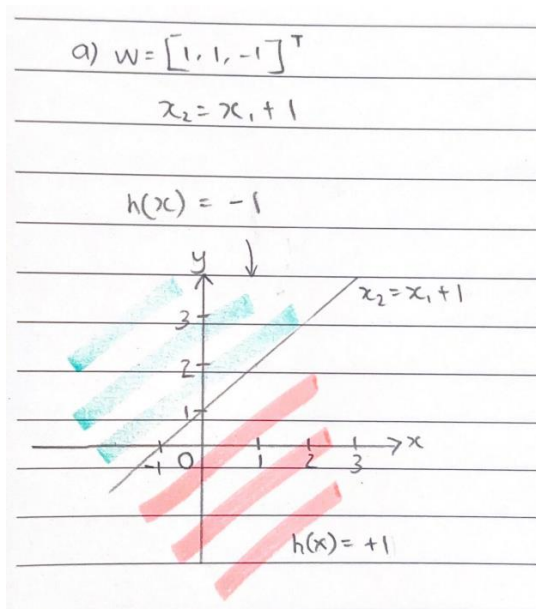 a) w = [1, 1, -1]ᵀ
x₂ = x₁ + 1
h(x) = -1
y
x₂ = x₁ + 1
3
2
1
-1 0 1 2 3 x
h(x) = +1